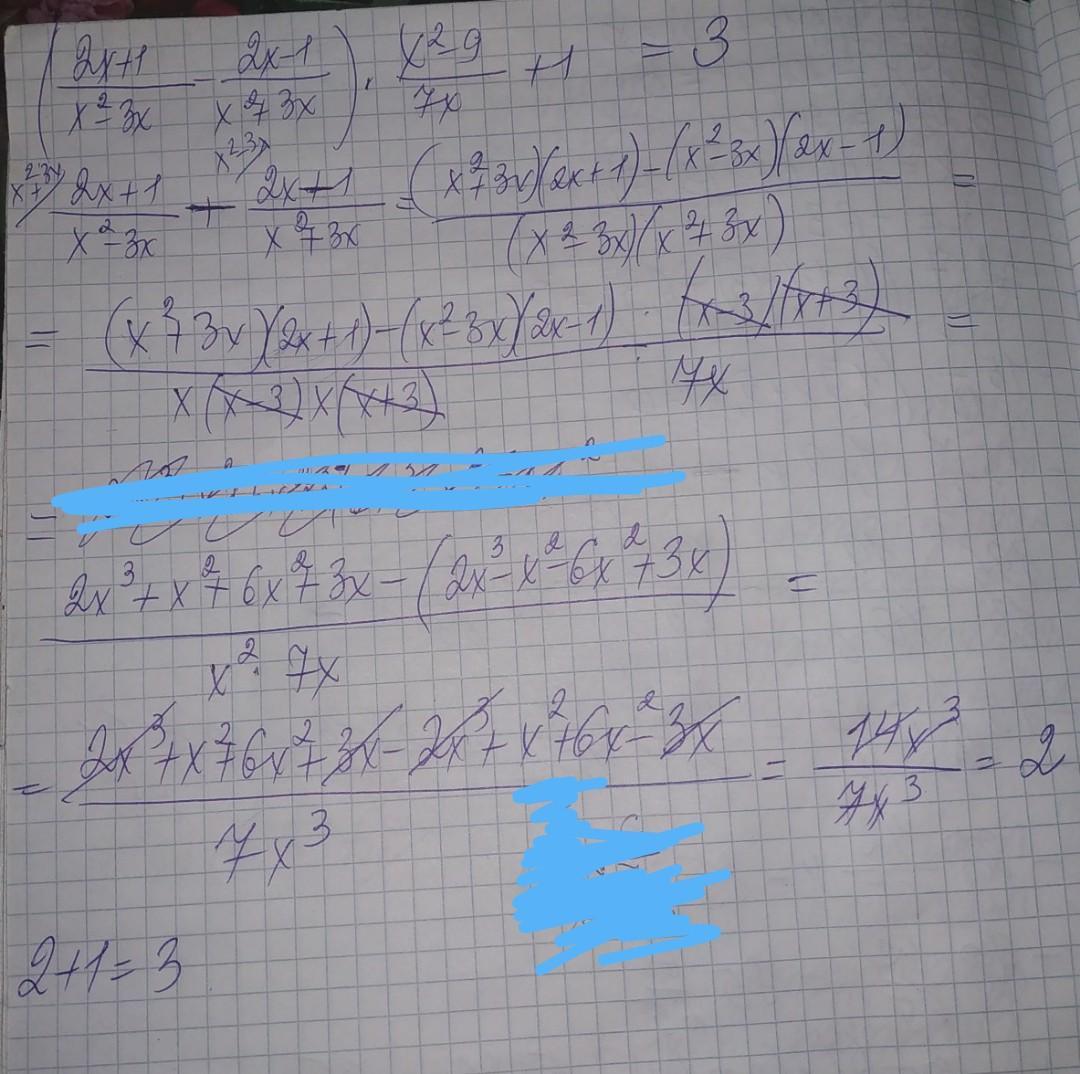 (2x+1/x²-3x - 2x-1/x²+3x) · x²-9/7x +1 = 3
x²+3x) 2x+1/x²-3x - x²-3x) 2x-1/x²+3x = (x²+3x)(2x+1)-(x²-3x)(2x-1)/(x²-3x)(x²+3x) =
= (x²+3x)(2x+1)-(x²-3x)(2x-1)/x(x-3)x(x+3) · (x-3)(x+3)/7x =
=
2x³+x²+6x²+3x-(2x³-x²-6x²+3x)/x²·7x =
= 2x³+x²+6x²+3x-2x³+x²+6x²-3x/7x³ = 14x³/7x³ = 2
2+1=3